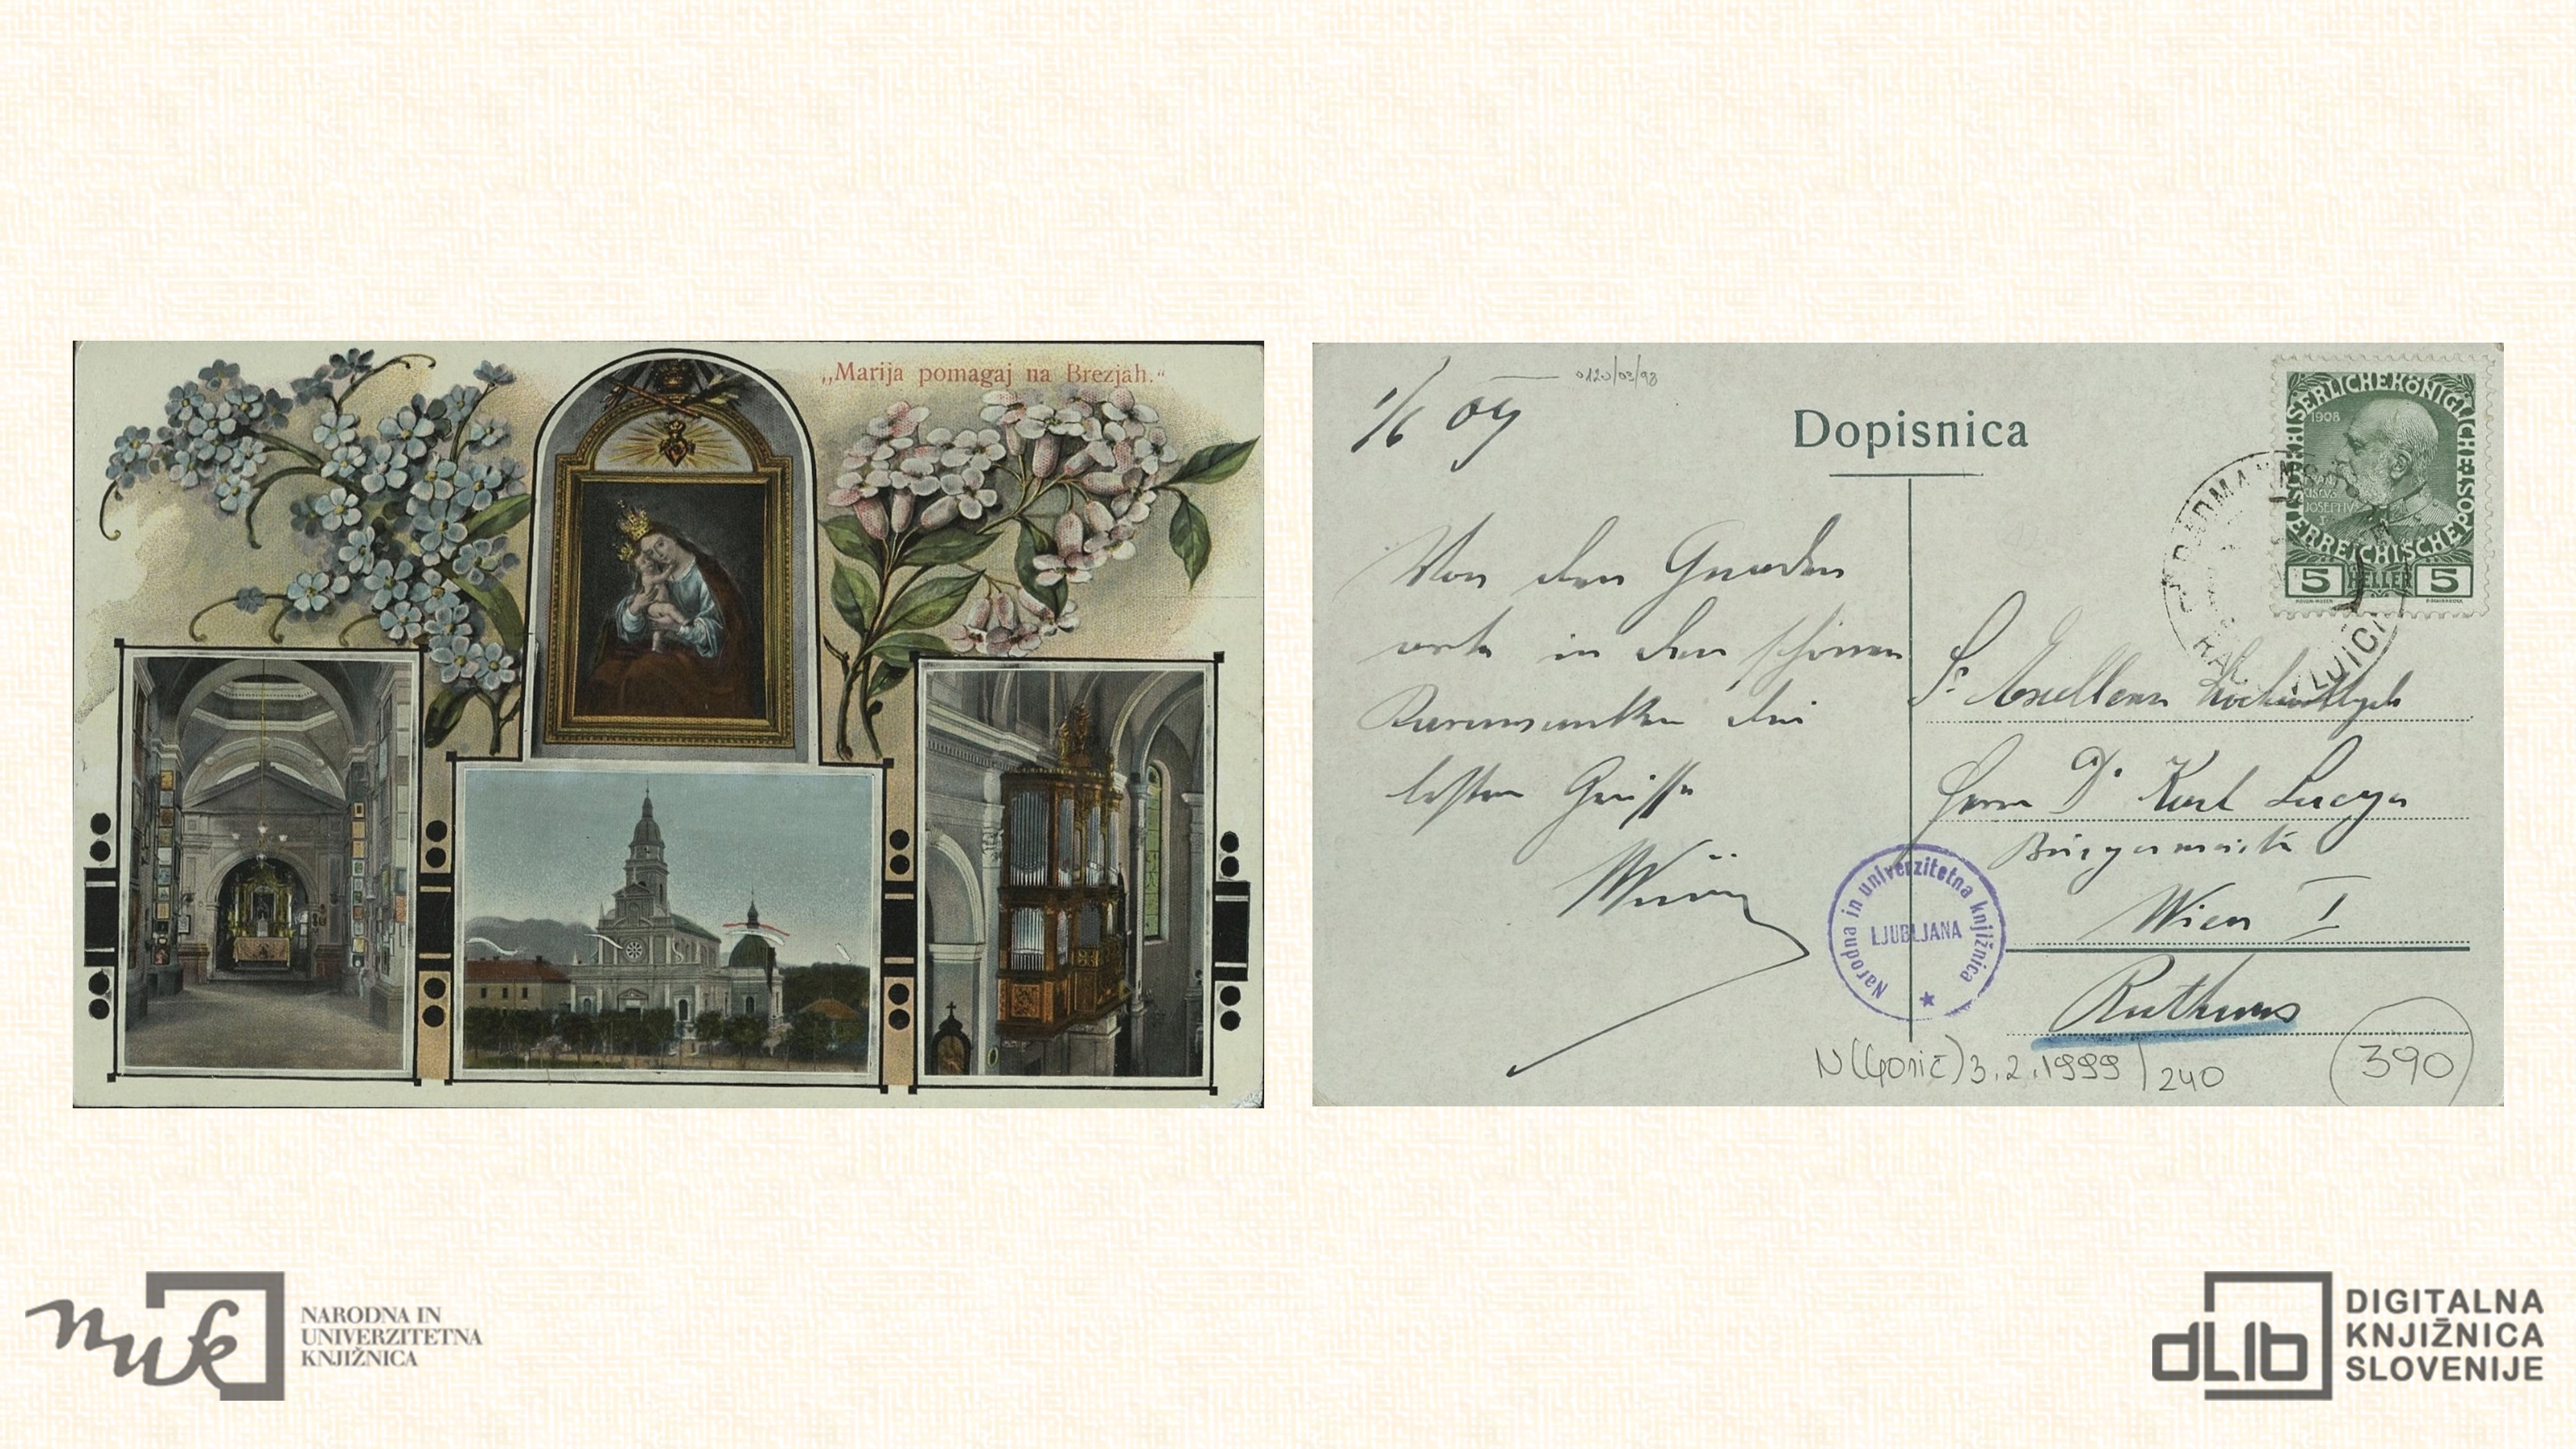 „Marija pomagaj na Brezjah.“
1/6 09
0120/03/98
Dopisnica
KAISERLICHEKÖNIGLICHE
ÖSTERREICHISCHEPOST
1908
5 HELLER 5
RADMANNSDORF
Von den Gnaden
orte in den schönen
die
besten Grüsse
Sr. Exellenz Hochwollgeb
Herrn Dr. Karl Lueger
Bürgermeister
Wien I
Rathaus
Narodna in univerzitetna knjižnica
LJUBLJANA
3.2.1999/240
390
nuk
NARODNA IN
UNIVERZITETNA
KNJIŽNICA
dLib
DIGITALNA
KNJIŽNICA
SLOVENIJE